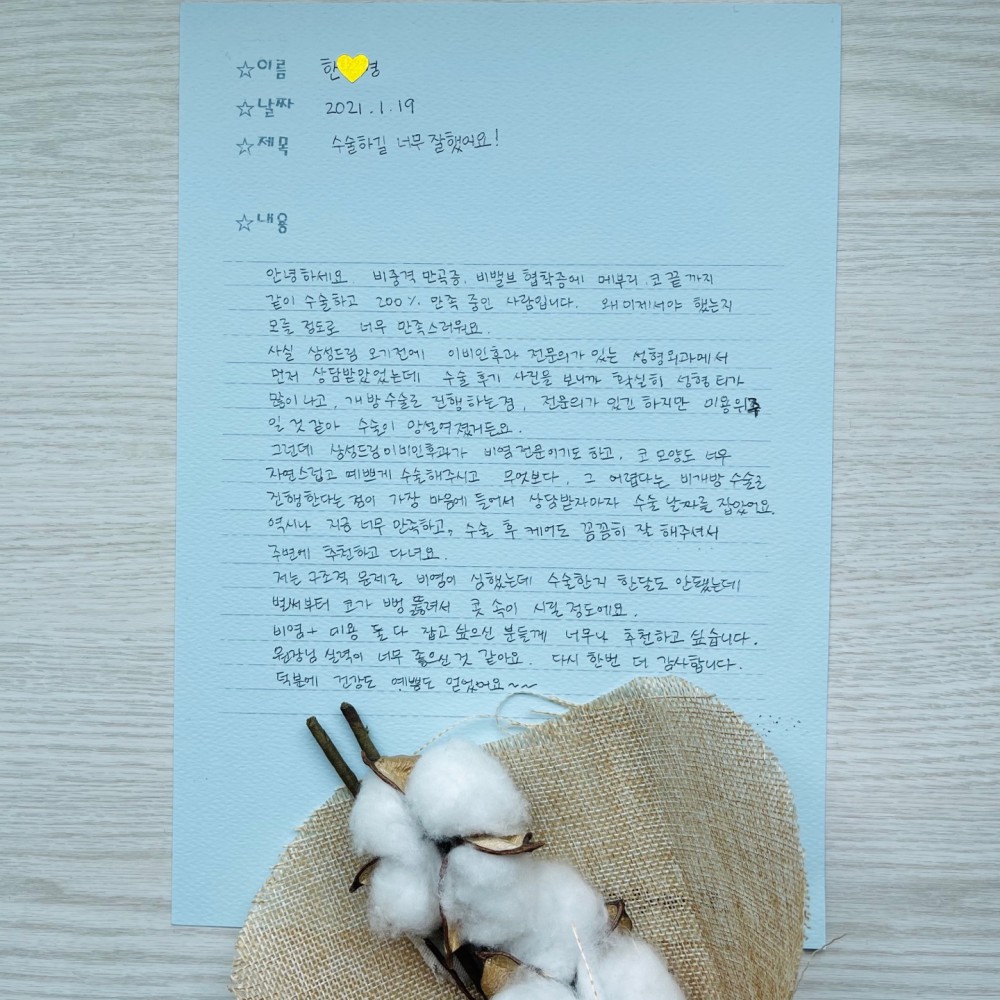 ☆이름 한 영
☆날짜 2021.1.19
☆제목 수술하길 너무 잘했어요!
☆내용
안녕하세요. 비중격 만곡증, 비밸브 협착증에 메부리, 코 끝 까지
같이 수술하고 200% 만족 중인 사람입니다. 왜 이제서야 했는지
모를 정도로 너무 만족스러워요.
사실 삼성드림 오기전에 이비인후과 전문의가 있는 성형외과에서
먼저 상담받았었는데 수술 후기 사진을 보니까 확실히 성형 티가
많이 나고, 개방수술로 진행하는점, 전문의가 있긴 하지만 미용위주
일 것 같아 수술이 망설여졌거든요.
그런데 삼성드림이비인후과가 비염전문이기도 하고, 코 모양도 너무
자연스럽고 예쁘게 수술해주시고 무엇보다, 그 어렵다는 비개방 수술로
진행한다는 점이 가장 마음에 들어서 상담받자마자 수술 날짜를 잡았어요.
역시나 지금 너무 만족하고, 수술 후 케어도 꼼꼼히 잘 해주셔서
주변에 추천하고 다녀요.
저는 구조적 문제로 비염이 심했는데 수술한지 한달도 안됐는데
벌써부터 코가 뻥 뚫려서 콧 속이 시릴 정도에요.
비염+ 미용 둘 다 잡고 싶으신 분들께 너무나 추천하고 싶습니다.
원장님 실력이 너무 좋으신 것 같아요. 다시 한번 더 감사합니다.
덕분에 건강도 예쁨도 얻었어요~~